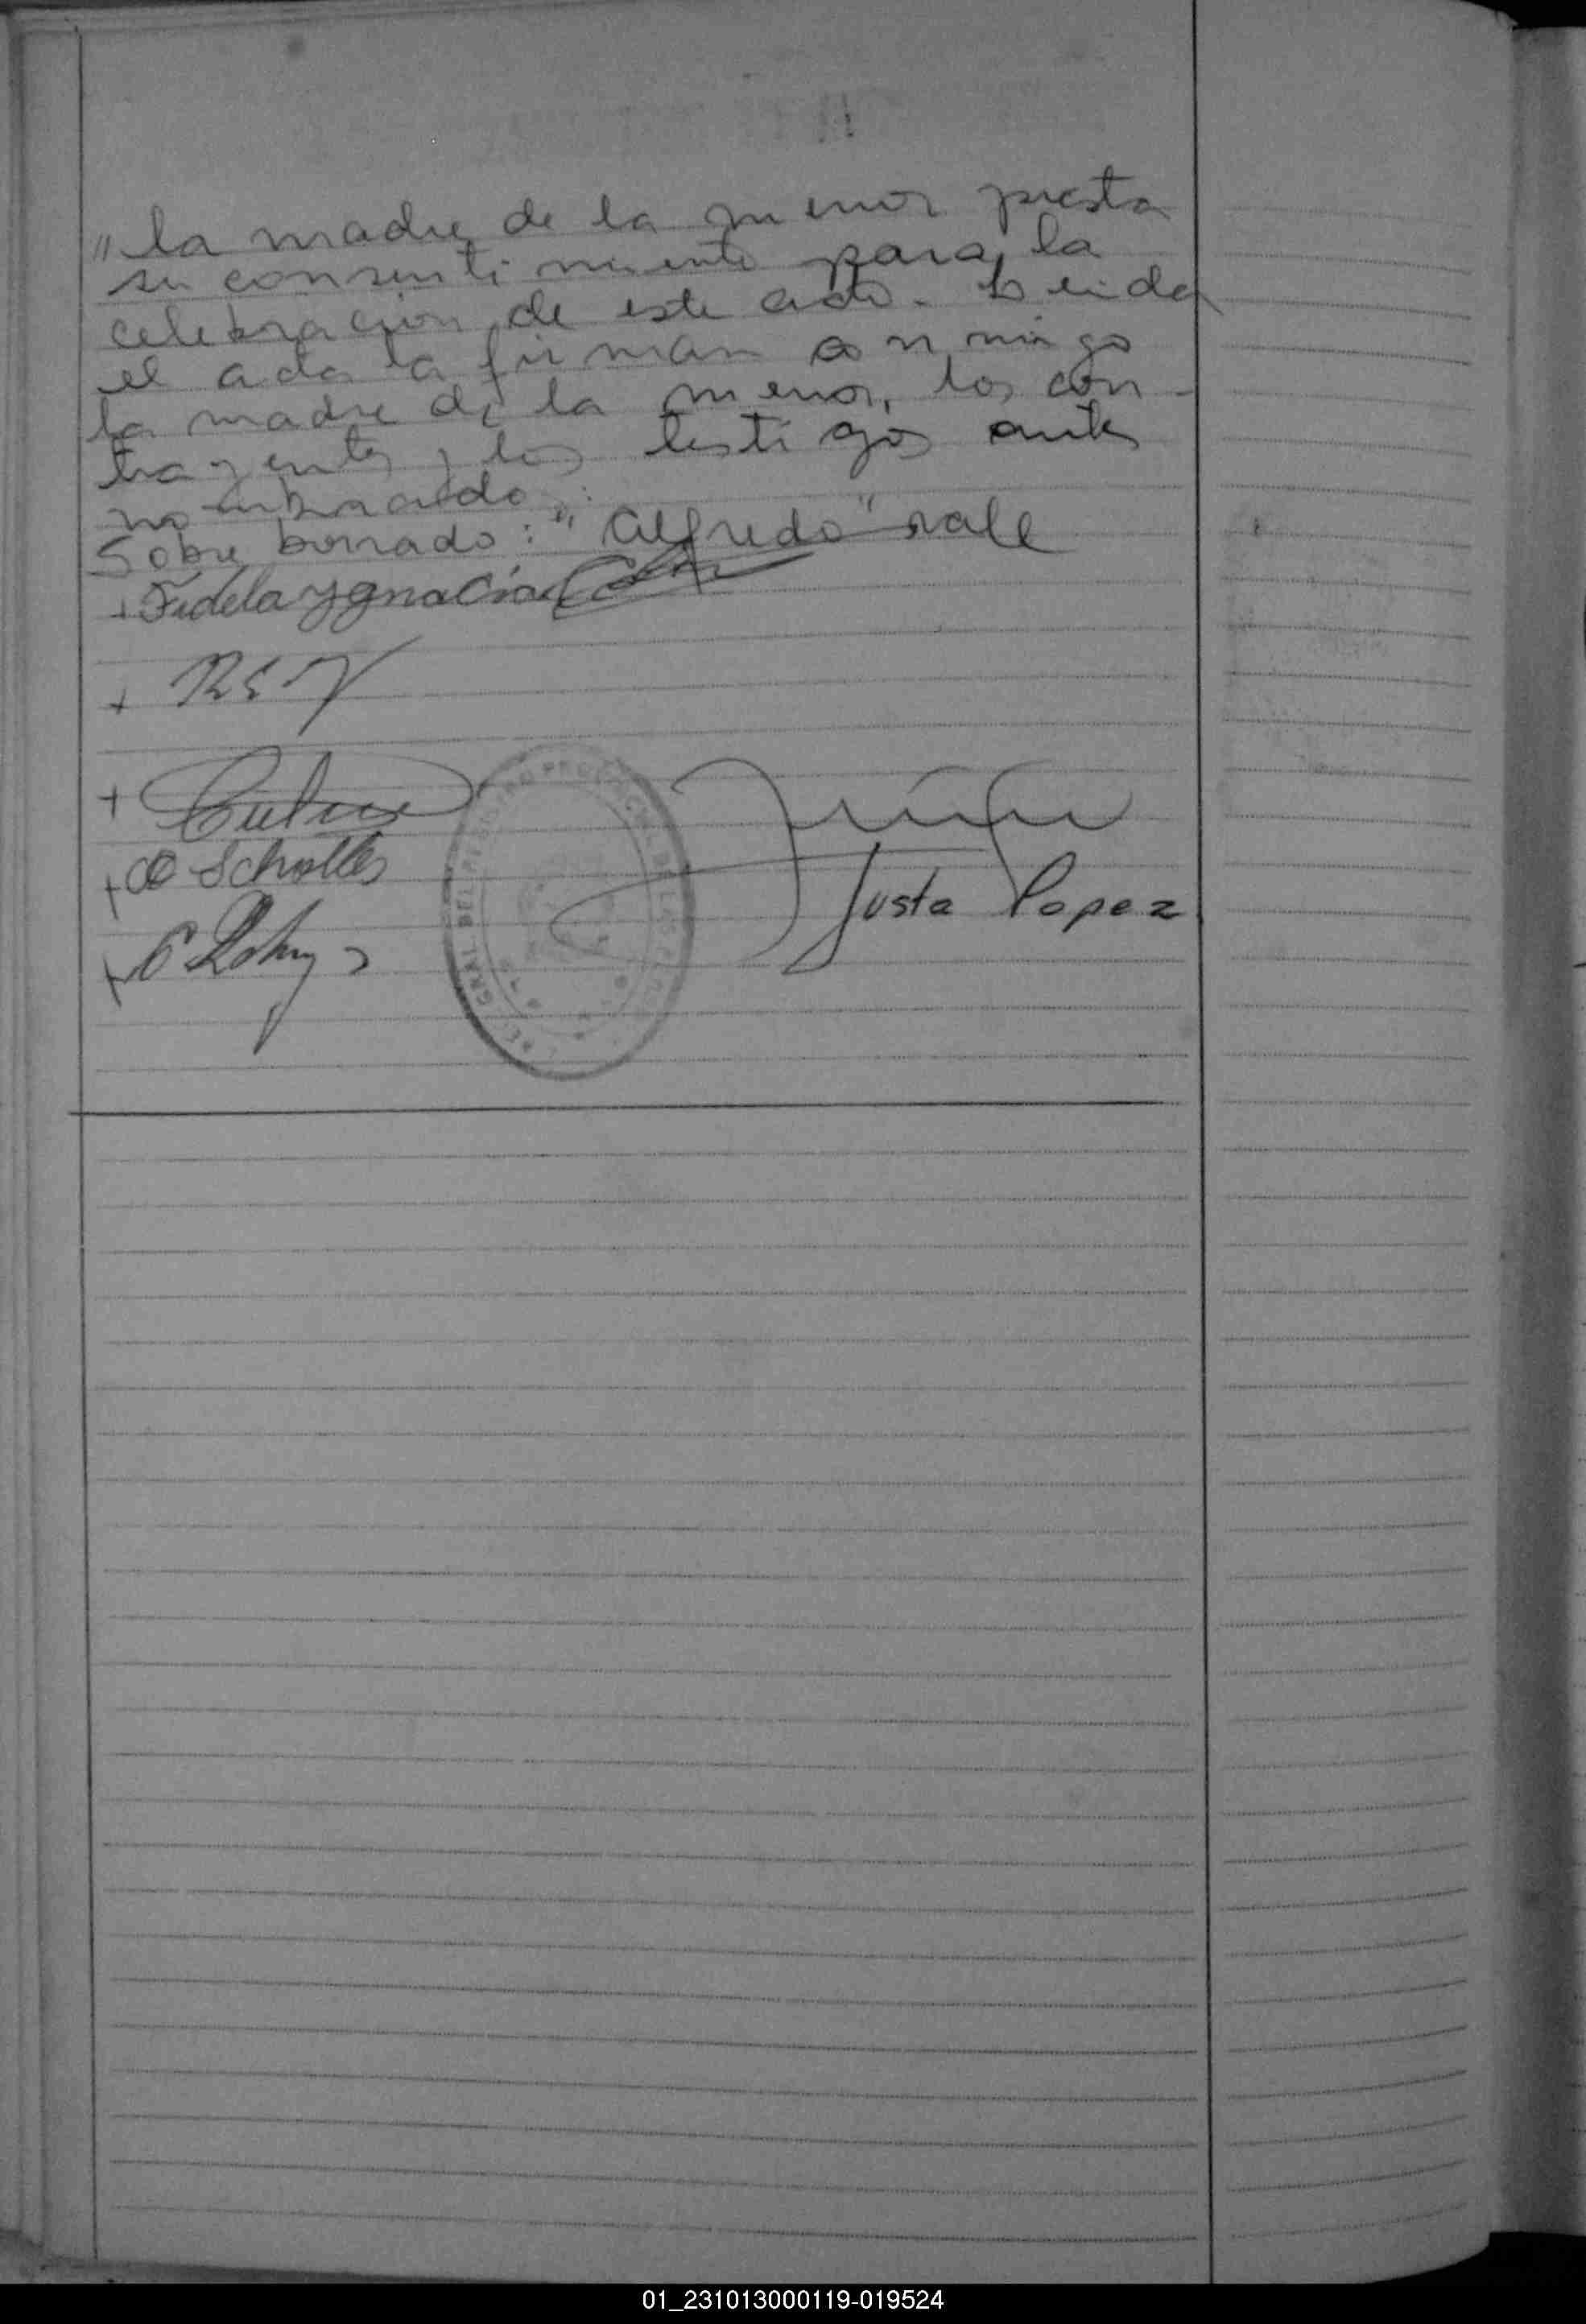 "la madre de la menor presta
su consentimiento para la
celebracion de este acto. Leida
el acta la firman conmigo
la madre de la menor, los con-
trayentes y los testigos antes
nombrados:
Sobre borrado: "Alfredo" vale
+ Fidela Ygnacia
+
+
+ Scholles
+
Justa Lopez
DEL REGISTRO
GRAL
01_231013000119-019524